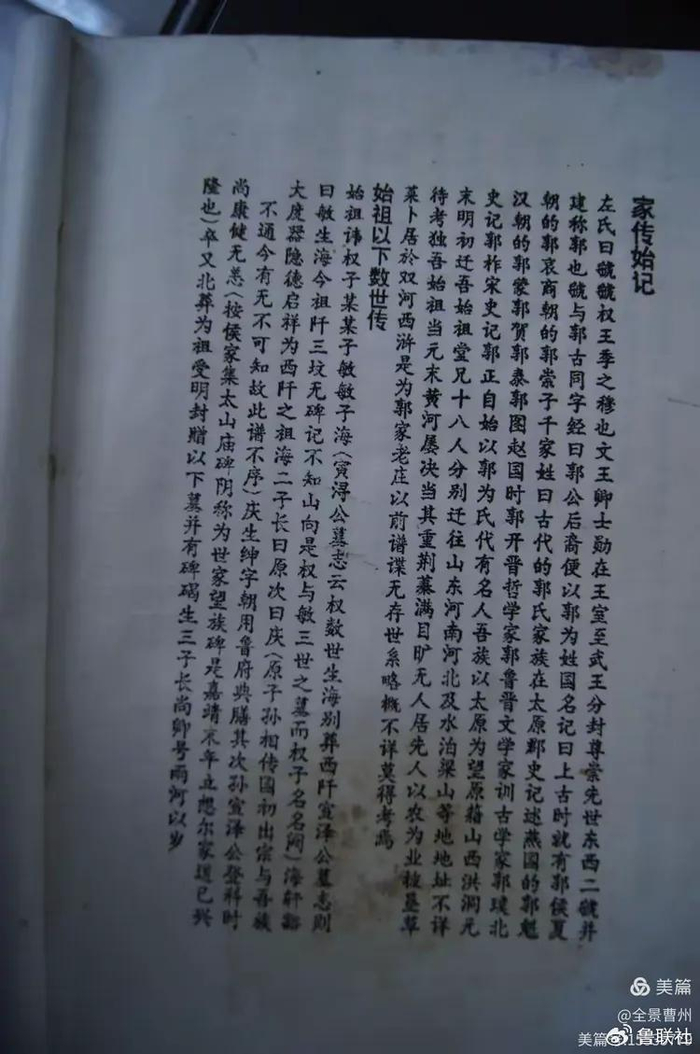 家传始记
左氏曰虢虢叔王季之穆也文王卿士勋在王室至武王分封尊崇先世东西二虢并
建称郭也虢与郭古同字经曰郭公后裔便以郭为姓国名记曰上古时就有郭侯夏
朝的郭哀商朝的郭崇子千家姓曰古代的郭氏家族在太原郡史记述燕国的郭魁
汉朝的郭蒙郭贺郭泰郭图赵国时郭开晋哲学家郭鲁晋文学家训古学家郭璞北
史记郭柞宋史记郭正自始以郭为氏代有名人吾族以太原为望原籍山西洪洞元
末明初迁吾始祖堂兄十八人分别迁往山东河南河北及水泊梁山等地地址不详
待考独吾始祖当元末黄河屡决当其重荆蓁满目旷无人居先人以农为业植垦草
莱卜居於双河西浒是为郭家老庄以前谱谍无存世系略概不详莫得考焉
始祖以下数世传
始祖讳权子某某子敏敏子海(寅浔公墓志云权数世生海别葬西阡宣泽公墓志则
曰敏生海今祖阡三坟无碑记不知山向是权与敏三世之墓而权子名名阙)海轩豁
大度器隐德启祥为西阡之祖海二子长曰原次曰庆(原子孙相传国初出宗与吾族
不通今有无不可知故此谱不序)庆生绅字朝用鲁府典膳其次孙宣泽公登科时
尚康健无恙(按侯家集太山庙碑阴称为世家望族碑是嘉靖末年立想尔家道已兴
隆也)卒又北葬为祖受明封赠以下墓并有碑碣生三子长尚卿号雨河以岁
美篇
@全景曹州
美篇
鲁联社